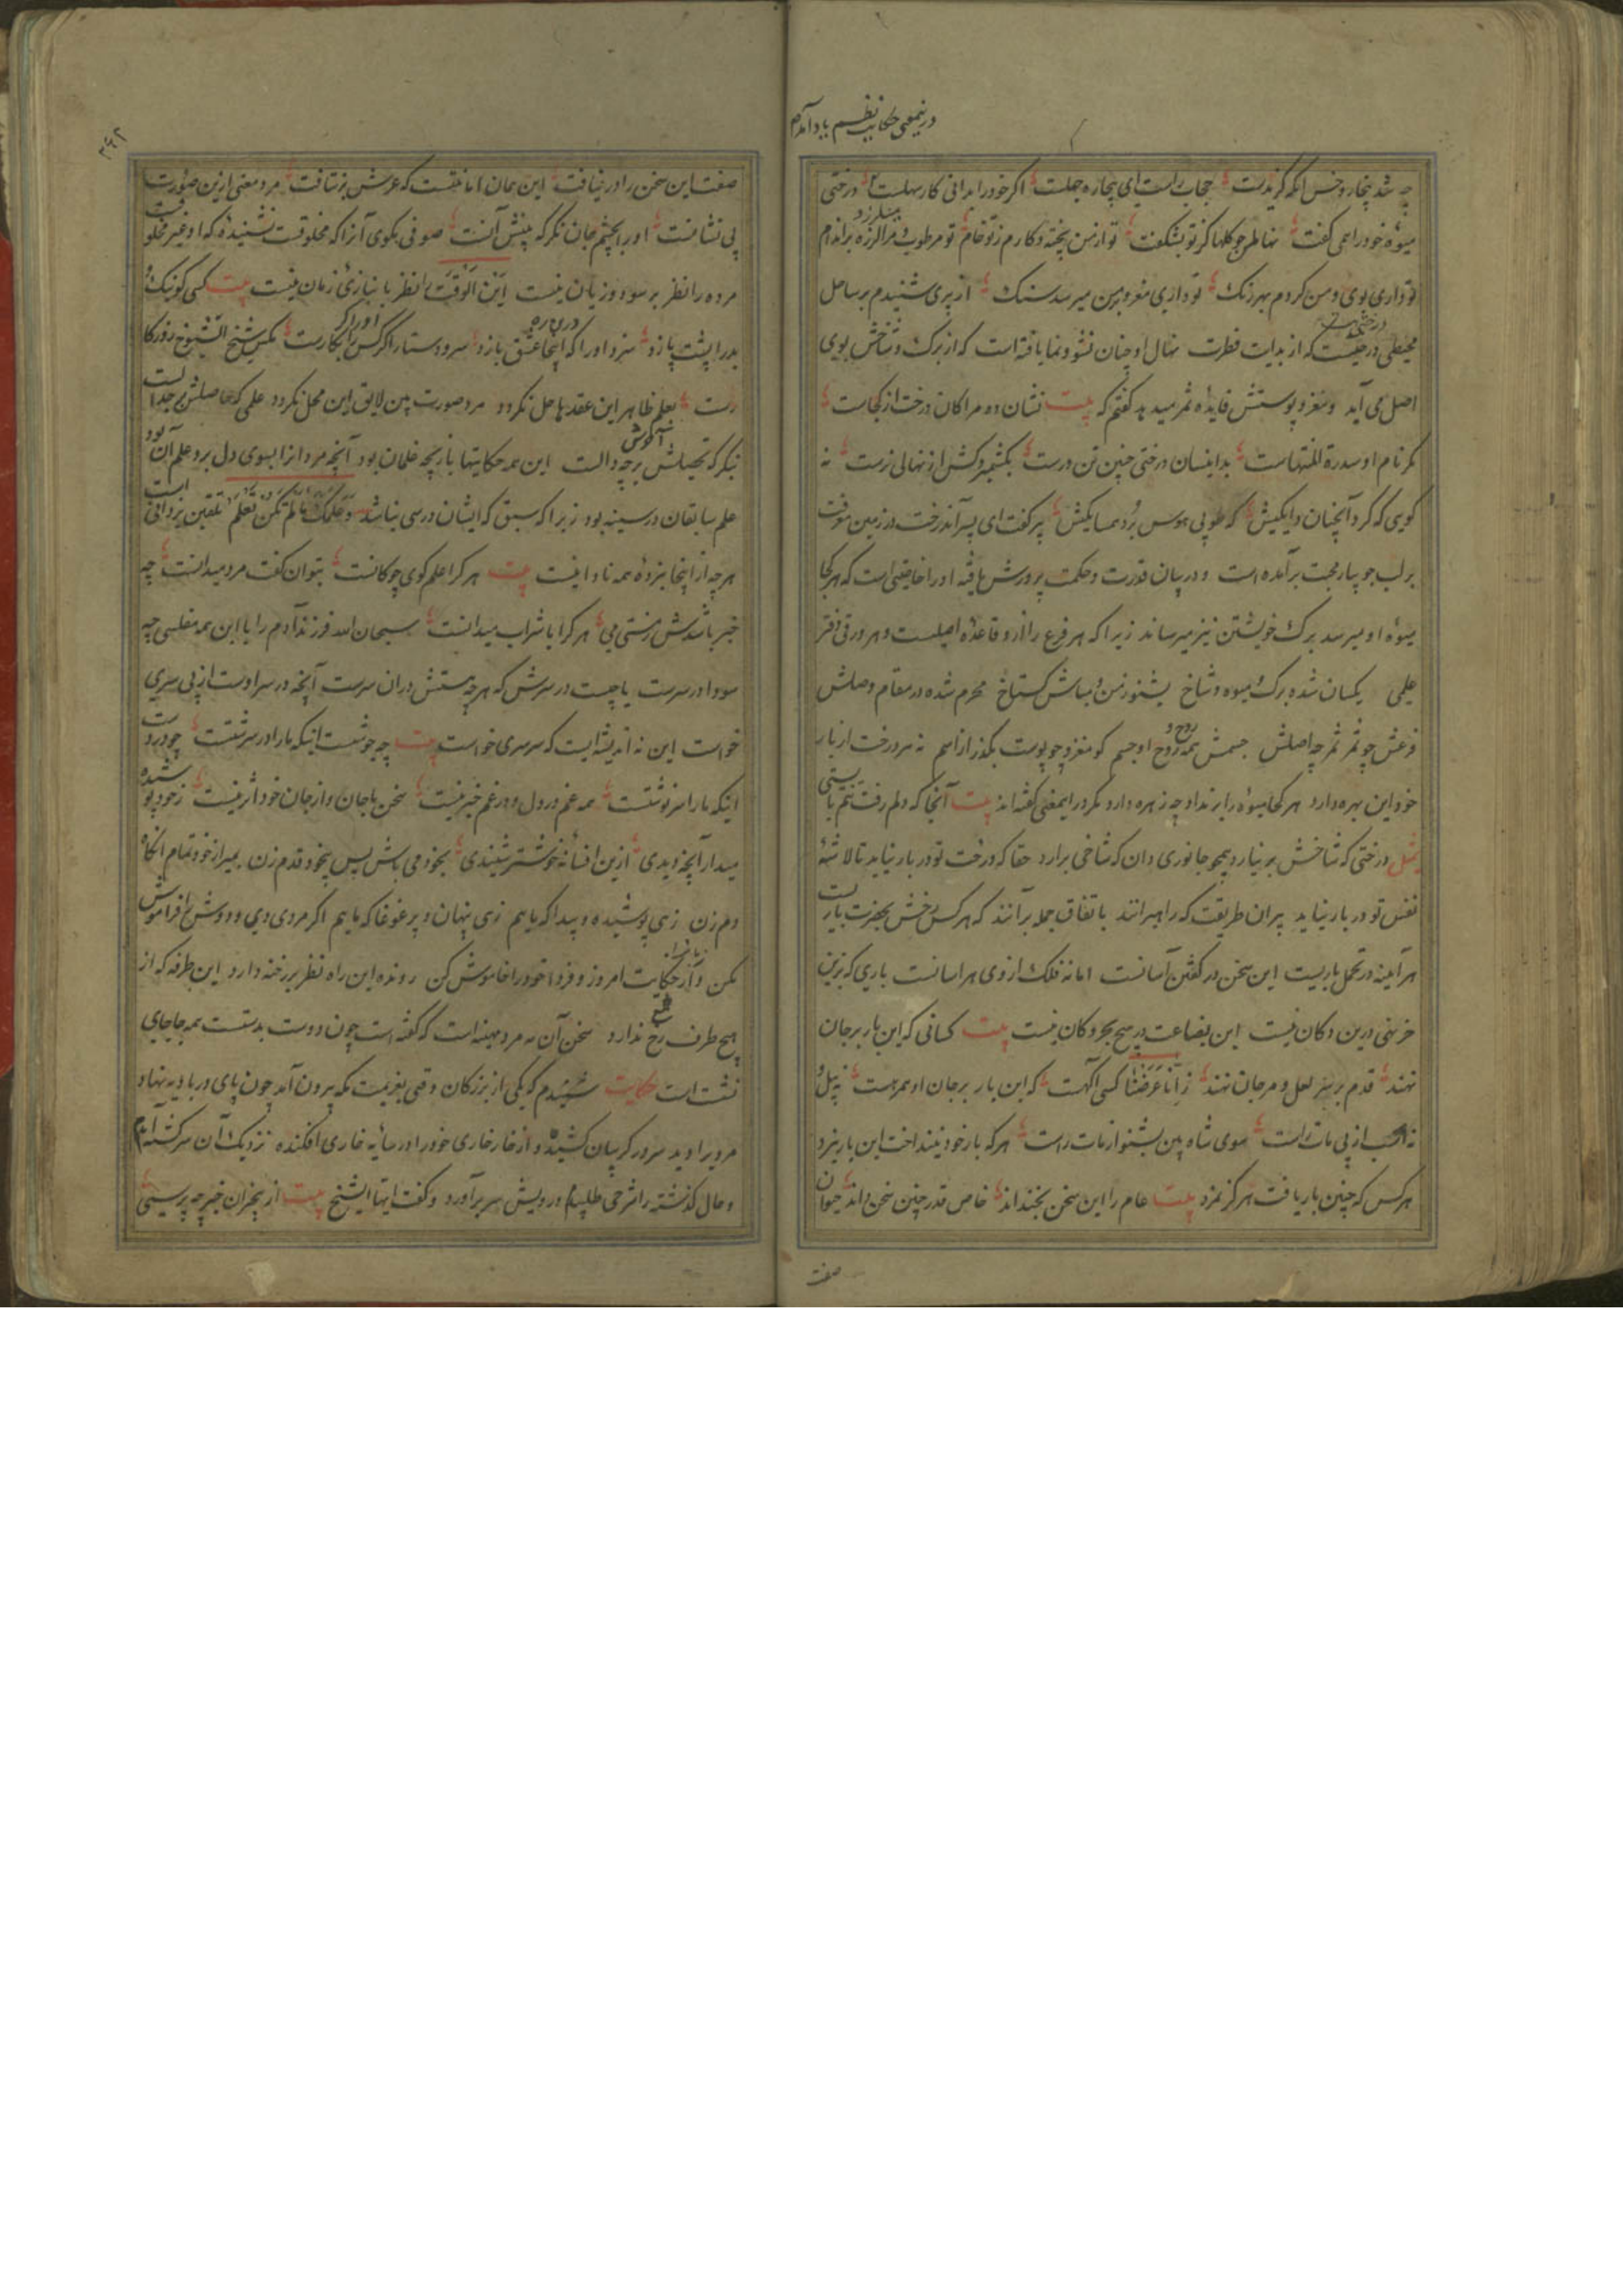 در نیمعنی حکایت نظم یاد آمدم
چه شد بیچاره خس انکه کزیدست حجاب راست ای بیچاره جهلست اکر خود را بدانی کار سهلست درختی
میوه خود را می کفت نهالم جو کلها کز تو بشکفت تو از من پخته و کارم ز تو خام تو مرطوب و مرا لرزه بر اندام
تو داری بوی و من کردم بهر رنک تو داری مغز و بر من میرسد سنک از پری شنیدم بر ساحل
محیطی درختیست که از بدایت فطرت نهال او چنان نشو و نما یافته است که از برک و شاخش بوی
اصل می آید و مغز و پوستش فایده ثمر میدهد کفتم که بیت نشان ده مرا کان درخت از کجاست
مکر نام او سدرة المنتهاست بدینسان درختی چنین تن درست بکشمیر و کش از نهالی نرست نه
کویی که کرد آنچنان دایکیش که طوبی هوس برد همسایکیش پیر کفت ای پسر آندرخت در زمین معرفت
بر لب جویبار محبت برآمده است و در بیان قدرت و حکمت پرورش یافته او را خاصیتی است که هر کجا
میوه او میرسد برک خویشتن نیز میرساند زیرا که هر فرع را ازو قاعده اصلیست و هر ورقی دفتر
علمی یکسان شده برک میوه و شاخ بشنو ز من و مباش کستاخ محرم شده در مقام وصلش
فرعش چو ثمر ثمر چو اصلش جسمش همه روح و روح او جسم کو مغز چو پوست بکذر از اسم نه هر درخت از بار
خود این بهره دارد هر کجا میوه را برند او چه زهره دارد مکر در اینمعنی کفته اند بیت آنجا که دلم رفت تنم بایستی
مثل درختی که شاخش بر نیارد همچو جانوری دان که شاخی برارد حقا که درخت تو در بار نیاید تا لاشه
نفس تو در بار نیاید پیران طریقت که راهبرانند باتفاق جمله برآنند که هر کس رخش بحضرت یاریست
هر آینه در تحمل باریست این سخن در کفتن آسانست اما نه فلک از وی هراسانست باری که برین
خر نهی درین دکان نیست این بضاعت در هیچ بحر و کان نیست بیت کسانی که این بار بر جان
نهند قدم بر سر لعل و مرجان نهند ز اِنّا عَرَضْنا کسی آکهست که این بار بر جان او همرهست نه پیل و
نه اسب از پی مات راست سوی شاه بین بشنو از مات راست هر که بار خود نینداخت این بار نبرد
هر کس که چنین بار یافت هرکز نمرد بیت عام را این سخن بخنداند خاص قدر چنین سخن داند حیوان
صفت
۳۶۲
صفت این سخن را در نیافت این همان امانتست که عرش بر نتافت مرد معنی ازین صورت
بی نشانست او را بچشم جان نکر که بینش آنست صوفی مکوی آنرا که مخلوقست نشنیده که او غیر مخلوقست
مرده را نظر بر سود و زیان نیست این الوقت را نظر با نیازی زمان نیست بیت کسی کو نیک و
بد را پشت پا زد سزد او را که اینجا عشق بازد سر و دستار اکر کس را بکارست مکس شیخ الشیوخ روزکا
رست بعلم ظاهر این عقدها حل نکردد مرد صورت بین لایق این محل نکردد علمی که حاصلش جدالست
نیکو که تحصیلش بر چه دالست این همه حکایتها بازیچه غلمان بود آنچه مرد را ز ایسوی دل برد علم آن بود
علم سابقان در سینه بود زیرا که سبق که ایشان درسی نباشد وَعَلَّمَکَ ما لَمْ تَکُنْ تَعْلَمُ تلقین یزدانی است
هر چه از اینجا نبرده همه نادانیست بیت هر کرا علم کوی چوکانست بتوان کفت مرد میدانست چه
خبر باشدش ز مستی می هر کرا با شراب میدانست سبحان الله فرزند آدم را با این همه مفلسی چه
سودا در سرست یا چیست در سرش که هر چه هستش در آن سرست آنچه در سر اوست از بی سری
خواست این نه اندیشه ایست که سرسری خواست بیت چه خوشست اینکه ما را در سرشتست چو دردست
اینکه ما را سرنوشتست همه غم در دل و در غم خبر نیست سخن با جان و از جان خود اثر نیست ز خود پوشیده
میدار آنچه دیدی ازین افسانه خوشتر شنیدی بخود می باش پس بیخود قدم زن بمیر از خود تمام آنکاه
دم زن زهی پوشیده و پیدا که مایم زهی پنهان و پر غوغا که مایم اکر مردی دی و دوش را فراموش
مکن و از حکایت امروز و فردا خود را خاموش کن رونده این راه نظر بر رخنه دارد این طرفه که از
هیچ طرف رخ ندارد سخن آن سر مرد مهینه است که کفته است چون دوست بدستست همه جا جای
نشست است حکایت شنیدم که یکی از بزرکان وقتی بعزیمت مکه بیرون آمد چون پای در بادیه نهاد
مردی را دید سر در کریبان کشیده و از خار خاری خود را در سایه خاری افکنده نزدیک آن سرکشته آمدم
و حال کذشته را شرحی طلبیدم درویش سر برآورد و کفت ایها الشیخ بیت از بیخبران خبر چه پرسی